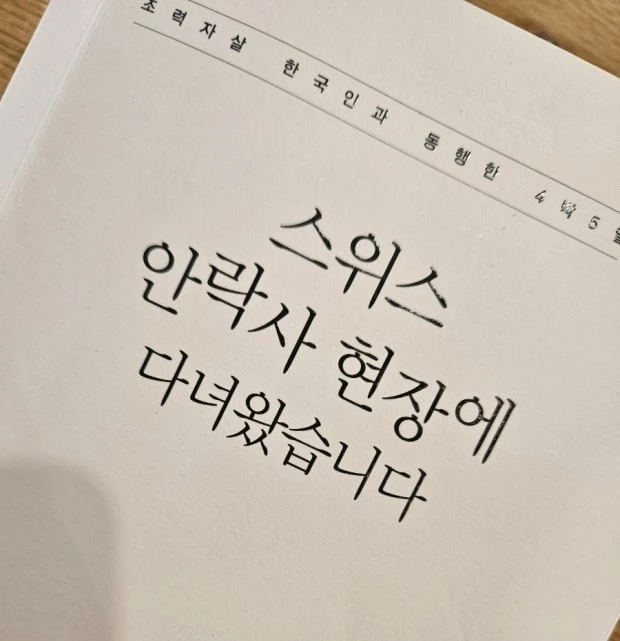 조력자살 한국인과 동행한 4박5일
스위스
안락사 현장에
다녀왔습니다